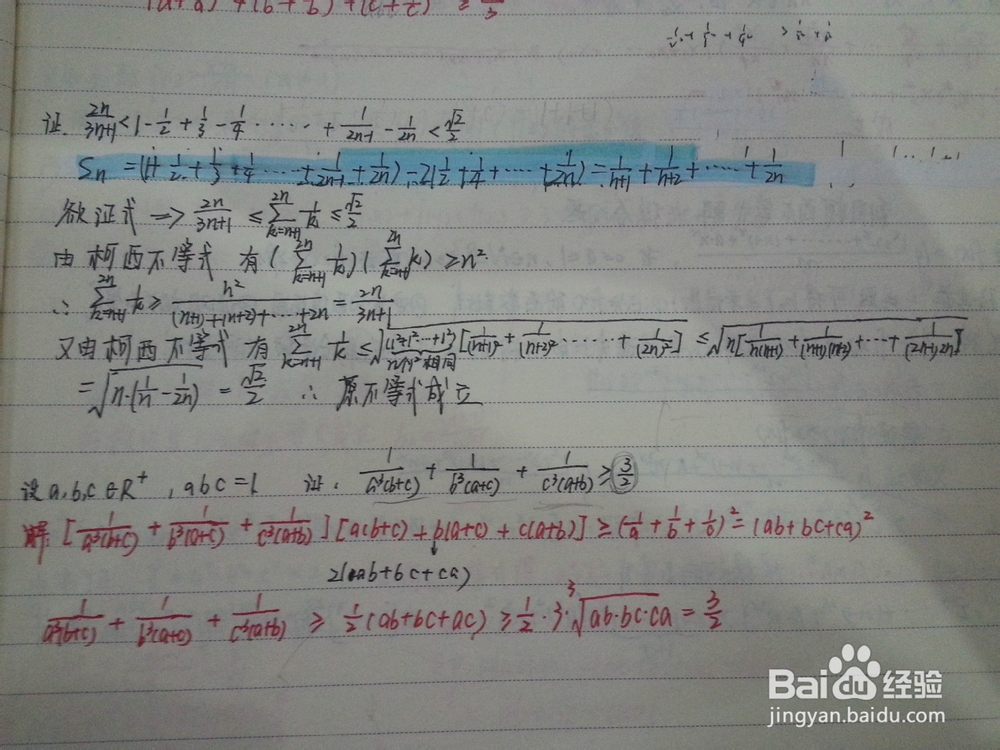 (a+1/a)²+(b+1/b)²+(c+1/c)² ≥ /3
证. 2n/(3n+1) < 1 - 1/2 + 1/3 - 1/4 ······ + 1/(2n-1) - 1/2n < √2/2
Sn = (1+1/2+1/3+1/4 ···· + 1/(2n-1) + 1/2n) - 2(1/2+1/4+ ···· + 1/2n) = 1/(n+1) + 1/(n+2) + ······ + 1/2n
欲证式 => 2n/(3n+1) ≤ ∑_{k=n+1}^{2n} 1/k ≤ √2/2
由柯西不等式 有 (∑_{k=n+1}^{2n} 1/k)(∑_{k=n+1}^{2n} k) ≥ n²
∴ ∑_{k=n+1}^{2n} 1/k ≥ n²/((n+1)+(n+2)+···+2n) = 2n/(3n+1)
又由柯西不等式 有 ∑_{k=n+1}^{2n} 1/k ≤ √((1²+1²···+1²)[1/(n+1)²+1/(n+2)² ······ + 1/(2n)²]) ≤ √(n[1/n(n+1) + 1/(n+1)(n+2) + ··· + 1/(2n-1)2n])
n个1²相同
= √(n·(1/n - 1/2n)) = √2/2 ∴ 原不等式成立
设a,b,c∈R⁺, abc=1 证. 1/a³(b+c) + 1/b³(a+c) + 1/c³(a+b) ≥ 3/2
解: [1/a³(b+c) + 1/b³(a+c) + 1/c³(a+b)][a(b+c)+b(a+c)+c(a+b)] ≥ (1/a+1/b+1/c)² = (ab+bc+ca)²
2(ab+bc+ca)
1/a³(b+c) + 1/b³(a+c) + 1/c³(a+b) ≥ 1/2(ab+bc+ac) ≥ 1/2·3·³√(ab·bc·ca) = 3/2
Baidu经验
jingyan.baidu.com